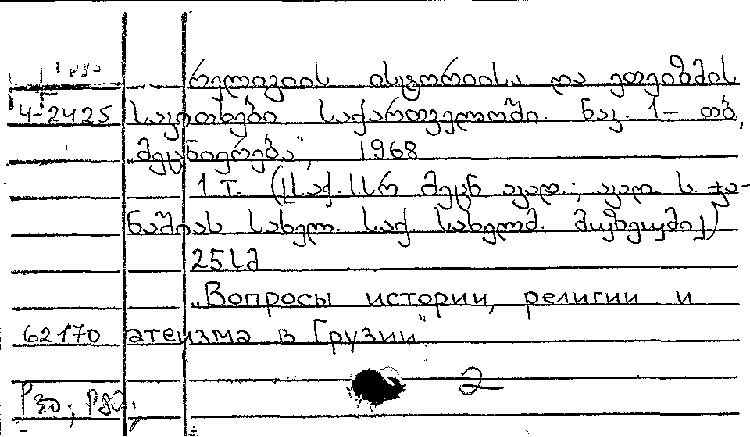 რელიგიის ისტორიისა და ათეიზმის
4-2425 საკითხები საქართველოში. ნაკ. 1- თბ.,
„მეცნიერება“, 1968
1 т. (საქ. სსრ მეცნ აკად.; აკად ს ჯა-
ნაშიას სახელ. საქ სახელმ. მუზეუმი)
25სმ
„Вопросы истории, религии и
62170 атеизма в Грузии“
2